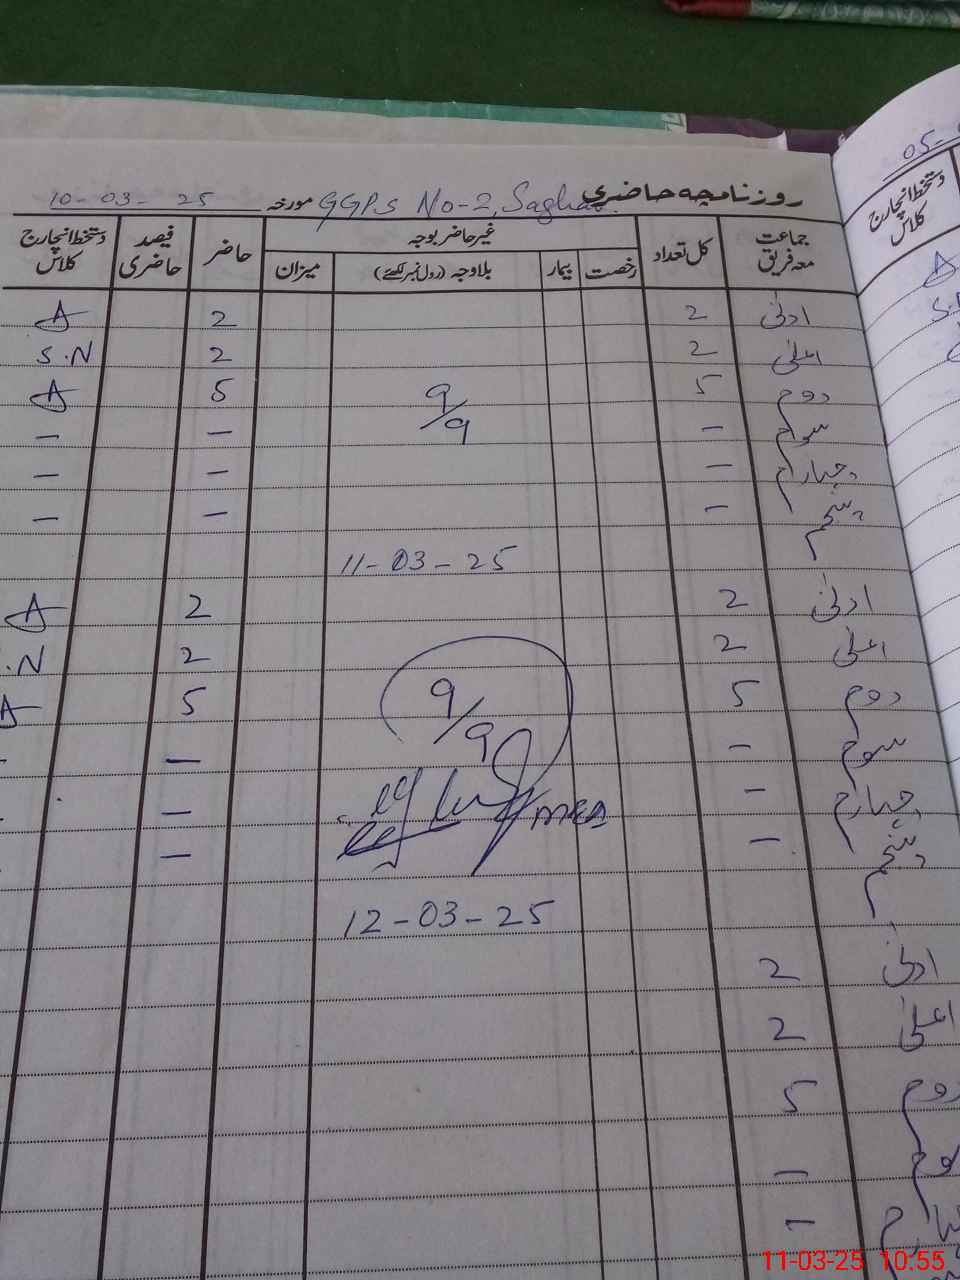 روزنامچہ حاضری GGPS No-2, Saghar مورخہ 10-03-25
جماعت معہ فریق کل تعداد غیر حاضر بوجہ حاضر فیصد حاضری دستخط انچارج کلاس
رخصت بیمار بلاوجہ (رول نمبر لکھئے) میزان
ادنیٰ 2 2 A
اعلیٰ 2 2 S.N
دوم 5 9/9 5 A
سوم - - -
چہارم - - -
پنجم - - -
11-03-25
ادنیٰ 2 2 A
اعلیٰ 2 2 .N
دوم 5 9/9 5 A
سوم - - -
چہارم - -
پنجم - -
12-03-25
ادنیٰ 2
اعلیٰ 2
دوم 5
سوم -
چہارم -
05-
دستخط انچارج کلاس
A
11-03-25 10:55